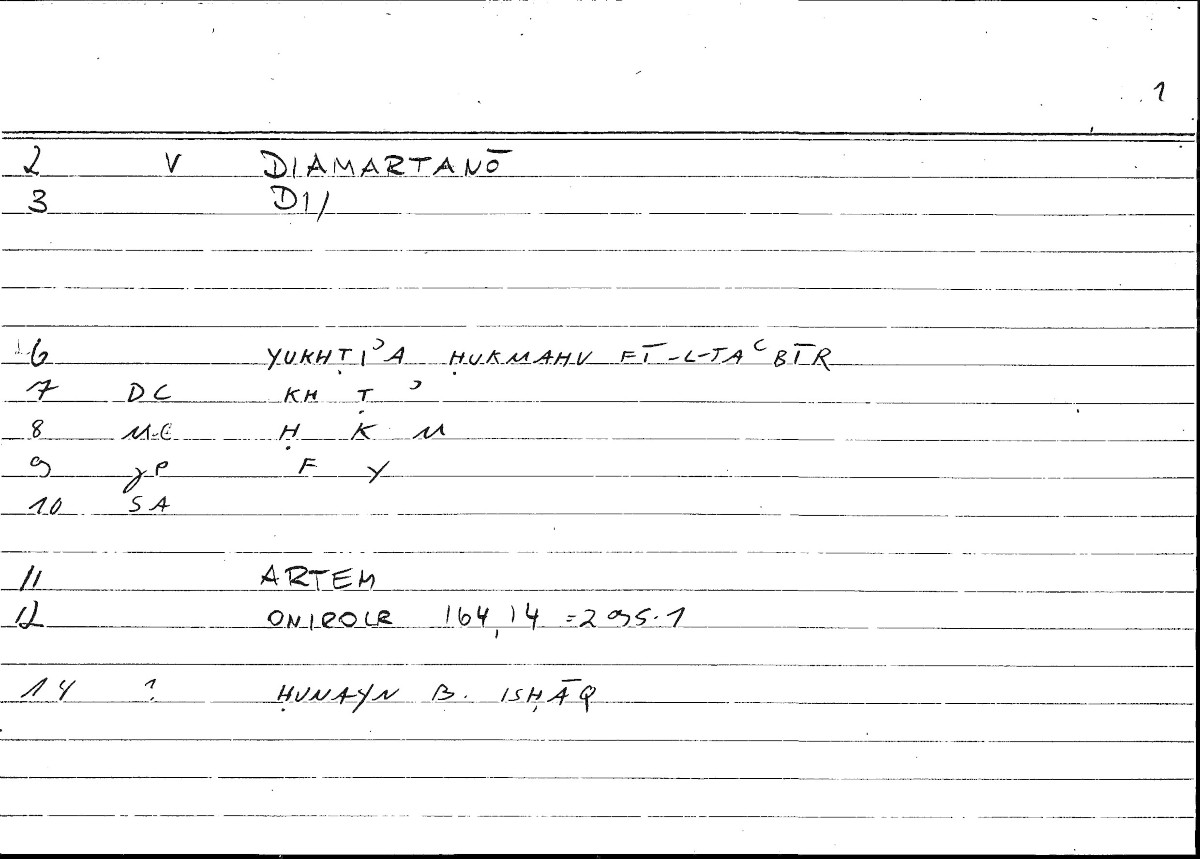 1
2 V DIAMARTANŌ
3 D1/
6 YUKHṬIʾA ḤUKMAHU FĪ-L-TAʿBĪR
7 DC KH Ṭ ʾ
8 MC Ḥ K M
9 γP F Y
10 SA
11 ARTEM
12 ONIROCR 164,14 =295.1
14 ? ḤUNAYN B. ISḤĀQ